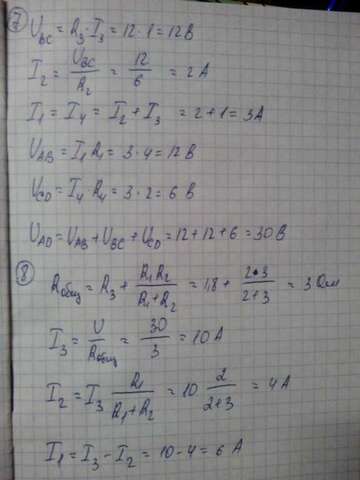 7) U_BC = R₃ · I₃ = 12 · 1 = 12 В
I₂ = U_BC / R₂ = 12 / 6 = 2 А
I₁ = I₄ = I₂ + I₃ = 2 + 1 = 3А
U_AB = I₁ R₁ = 3 · 4 = 12 В
U_CD = I₄ R₄ = 3 · 2 = 6 В
U_AD = U_AB + U_BC + U_CD = 12 + 12 + 6 = 30 В
8) R_общ = R₃ + R₁R₂ / (R₁ + R₂) = 1,8 + 2·3 / (2+3) = 3 Ом
I₃ = U / R_общ = 30 / 3 = 10 А
I₂ = I₃ R₁ / (R₁ + R₂) = 10 2 / (2+3) = 4 А
I₁ = I₃ - I₂ = 10 - 4 = 6 А